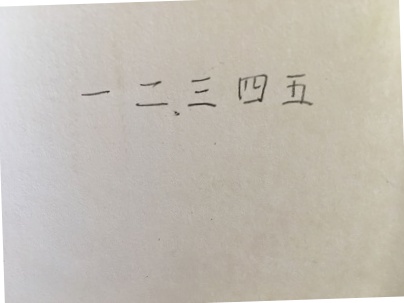 一 二、三 四 五